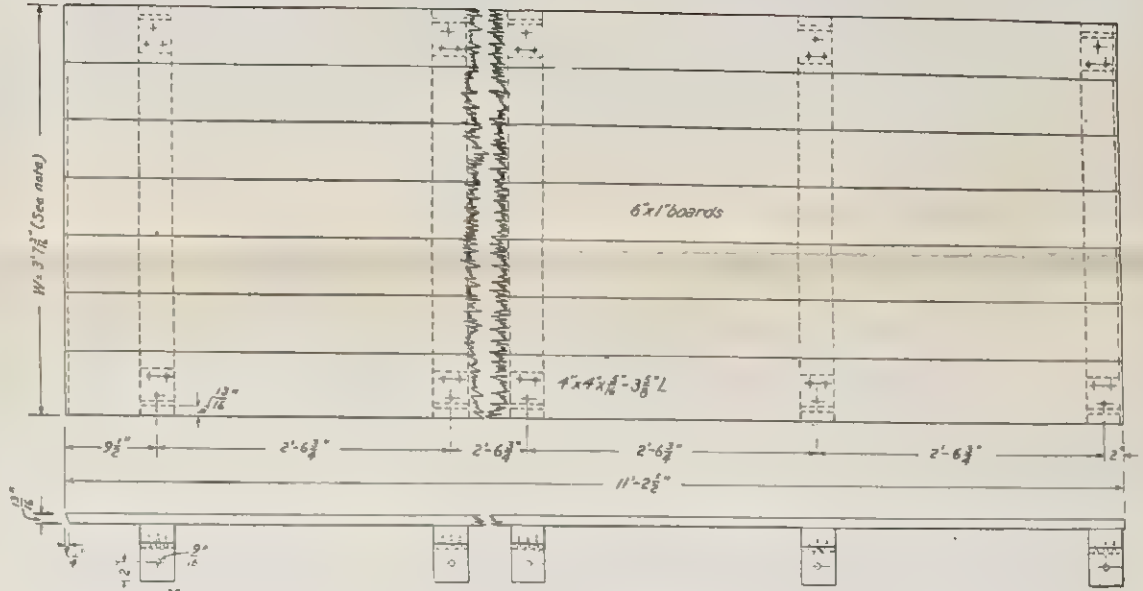 W= (See note)
6"x1" boards
4"x4"x5/16"-3 5/8" L
13/16"
9 1/2"
2'-6 3/4"
2'-6 3/4"
2'-6 3/4"
2'-6 3/4"
2"
11'-2 1/2"
13/16"
9/16"